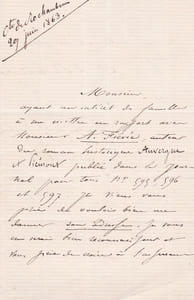 29 juin 1863.
Monsieur
ayant un intérêt de famille
à me mettre en rapport avec
Monsieur A. auteur
du roman historique Auvergne
& publié dans le jour-
nal pour tous Nos 595, 596
et 597 je viens vous
prier de vouloir bien me
donner son Je vous
en serai bien reconnaissant et
vous prie de croire à l'assurance